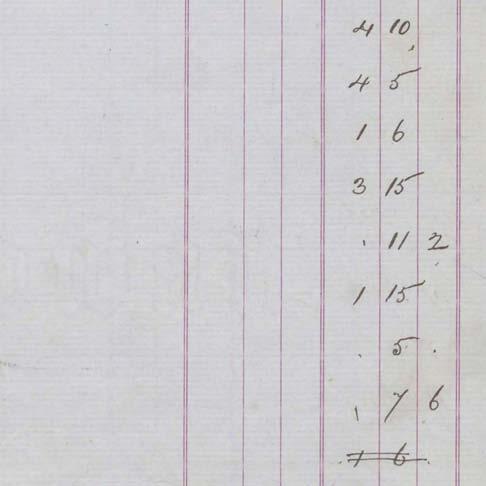 4 10
4 5
1 6
3 15
. 11 2
1 15
. 5 .
. 7 6
1 6